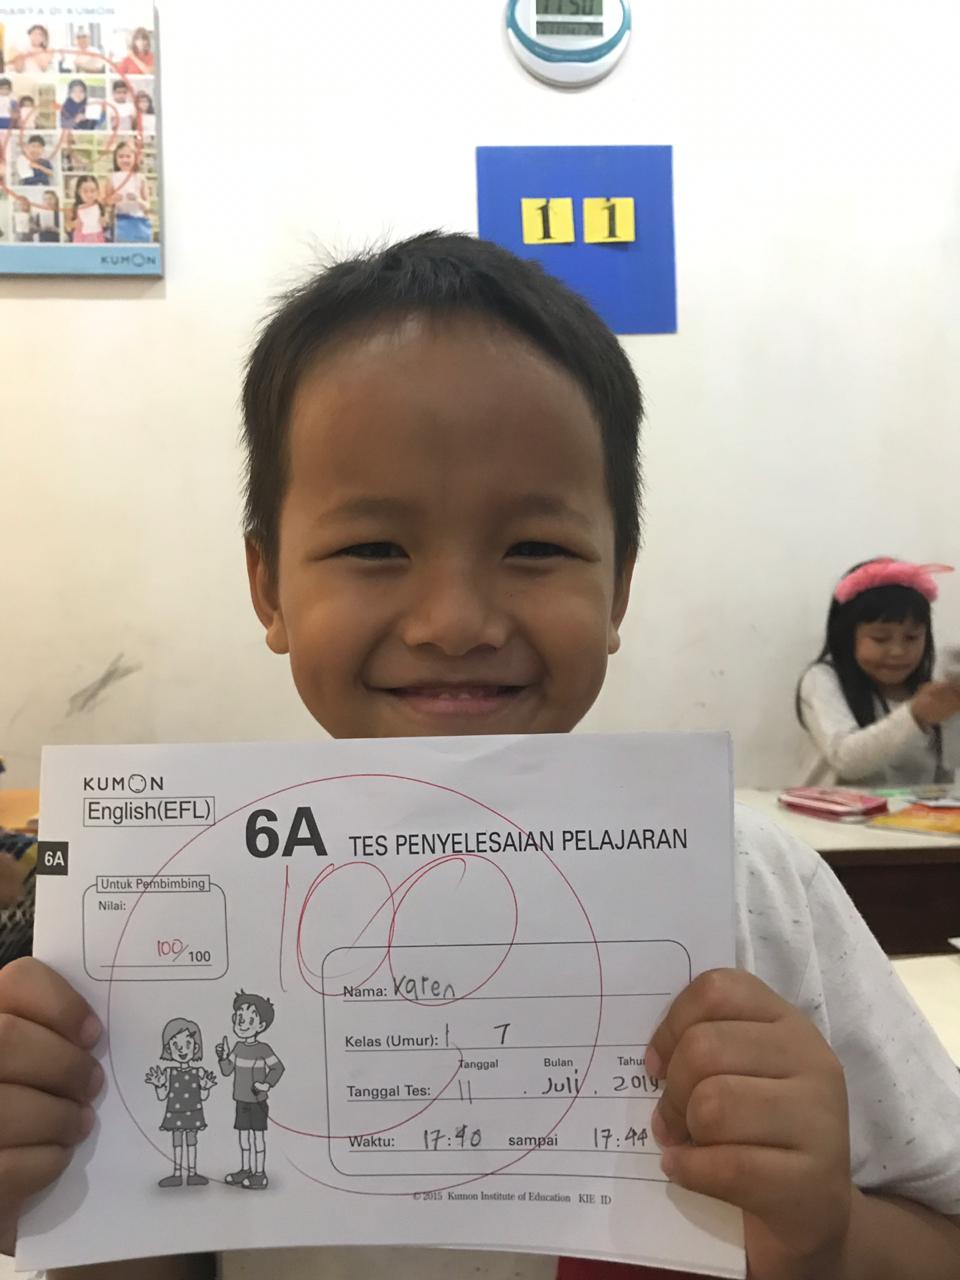 DI KUMON
KUMON
11
KUMON
English(EFL)
6A TES PENYELESAIAN PELAJARAN
6A
Untuk Pembimbing
Nilai:
100/100
100
Nama: Karen
Kelas (Umur): 1 7
Tanggal Bulan Tahu
Tanggal Tes: 11 . Juli . 2019
Waktu: 17:40 sampai 17:44
© 2015 Kumon Institute of Education KIE ID